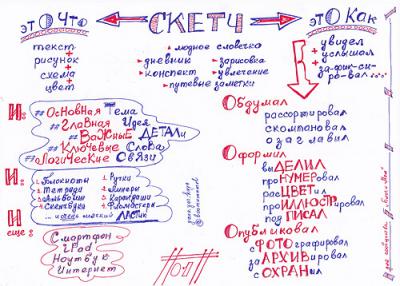 этО Что
СКЕТЧ
этО Как
текст
+
рисунок
+
схема
+
цвет
модное словечко
дневник
зарисовка
конспект
увлечение
путевые заметки
увидел
+
услышал
+
за-фик-си-
ро-вал....
И:
# ОсНоВНАЯ Тема
# ГлаВНАЯ Идея
# ВаЖНЫЕ ДЕТАЛи
# Ключевые Слова
# Логические Связи
И:
1. Блокноты
2. Тетради
3. Альбомы
4. Скетчбуки
1. Ручки
2. Линеры
3. Карандаши
4. Фломастеры
... и очень мягкий ЛАСТик
И
еще:
Смартфон
iPad
Ноутбук
Интернет
Обдумал
рассортировал
скомпоновал
озаглавил
Оформил
выДЕЛИЛ
проНУМЕРовал
расЦВЕТил
проИЛЛЮСТРировал
подПИСАЛ
Опубликовал
сФОТОграфировал
заАРХИВировал
сОХРАНил